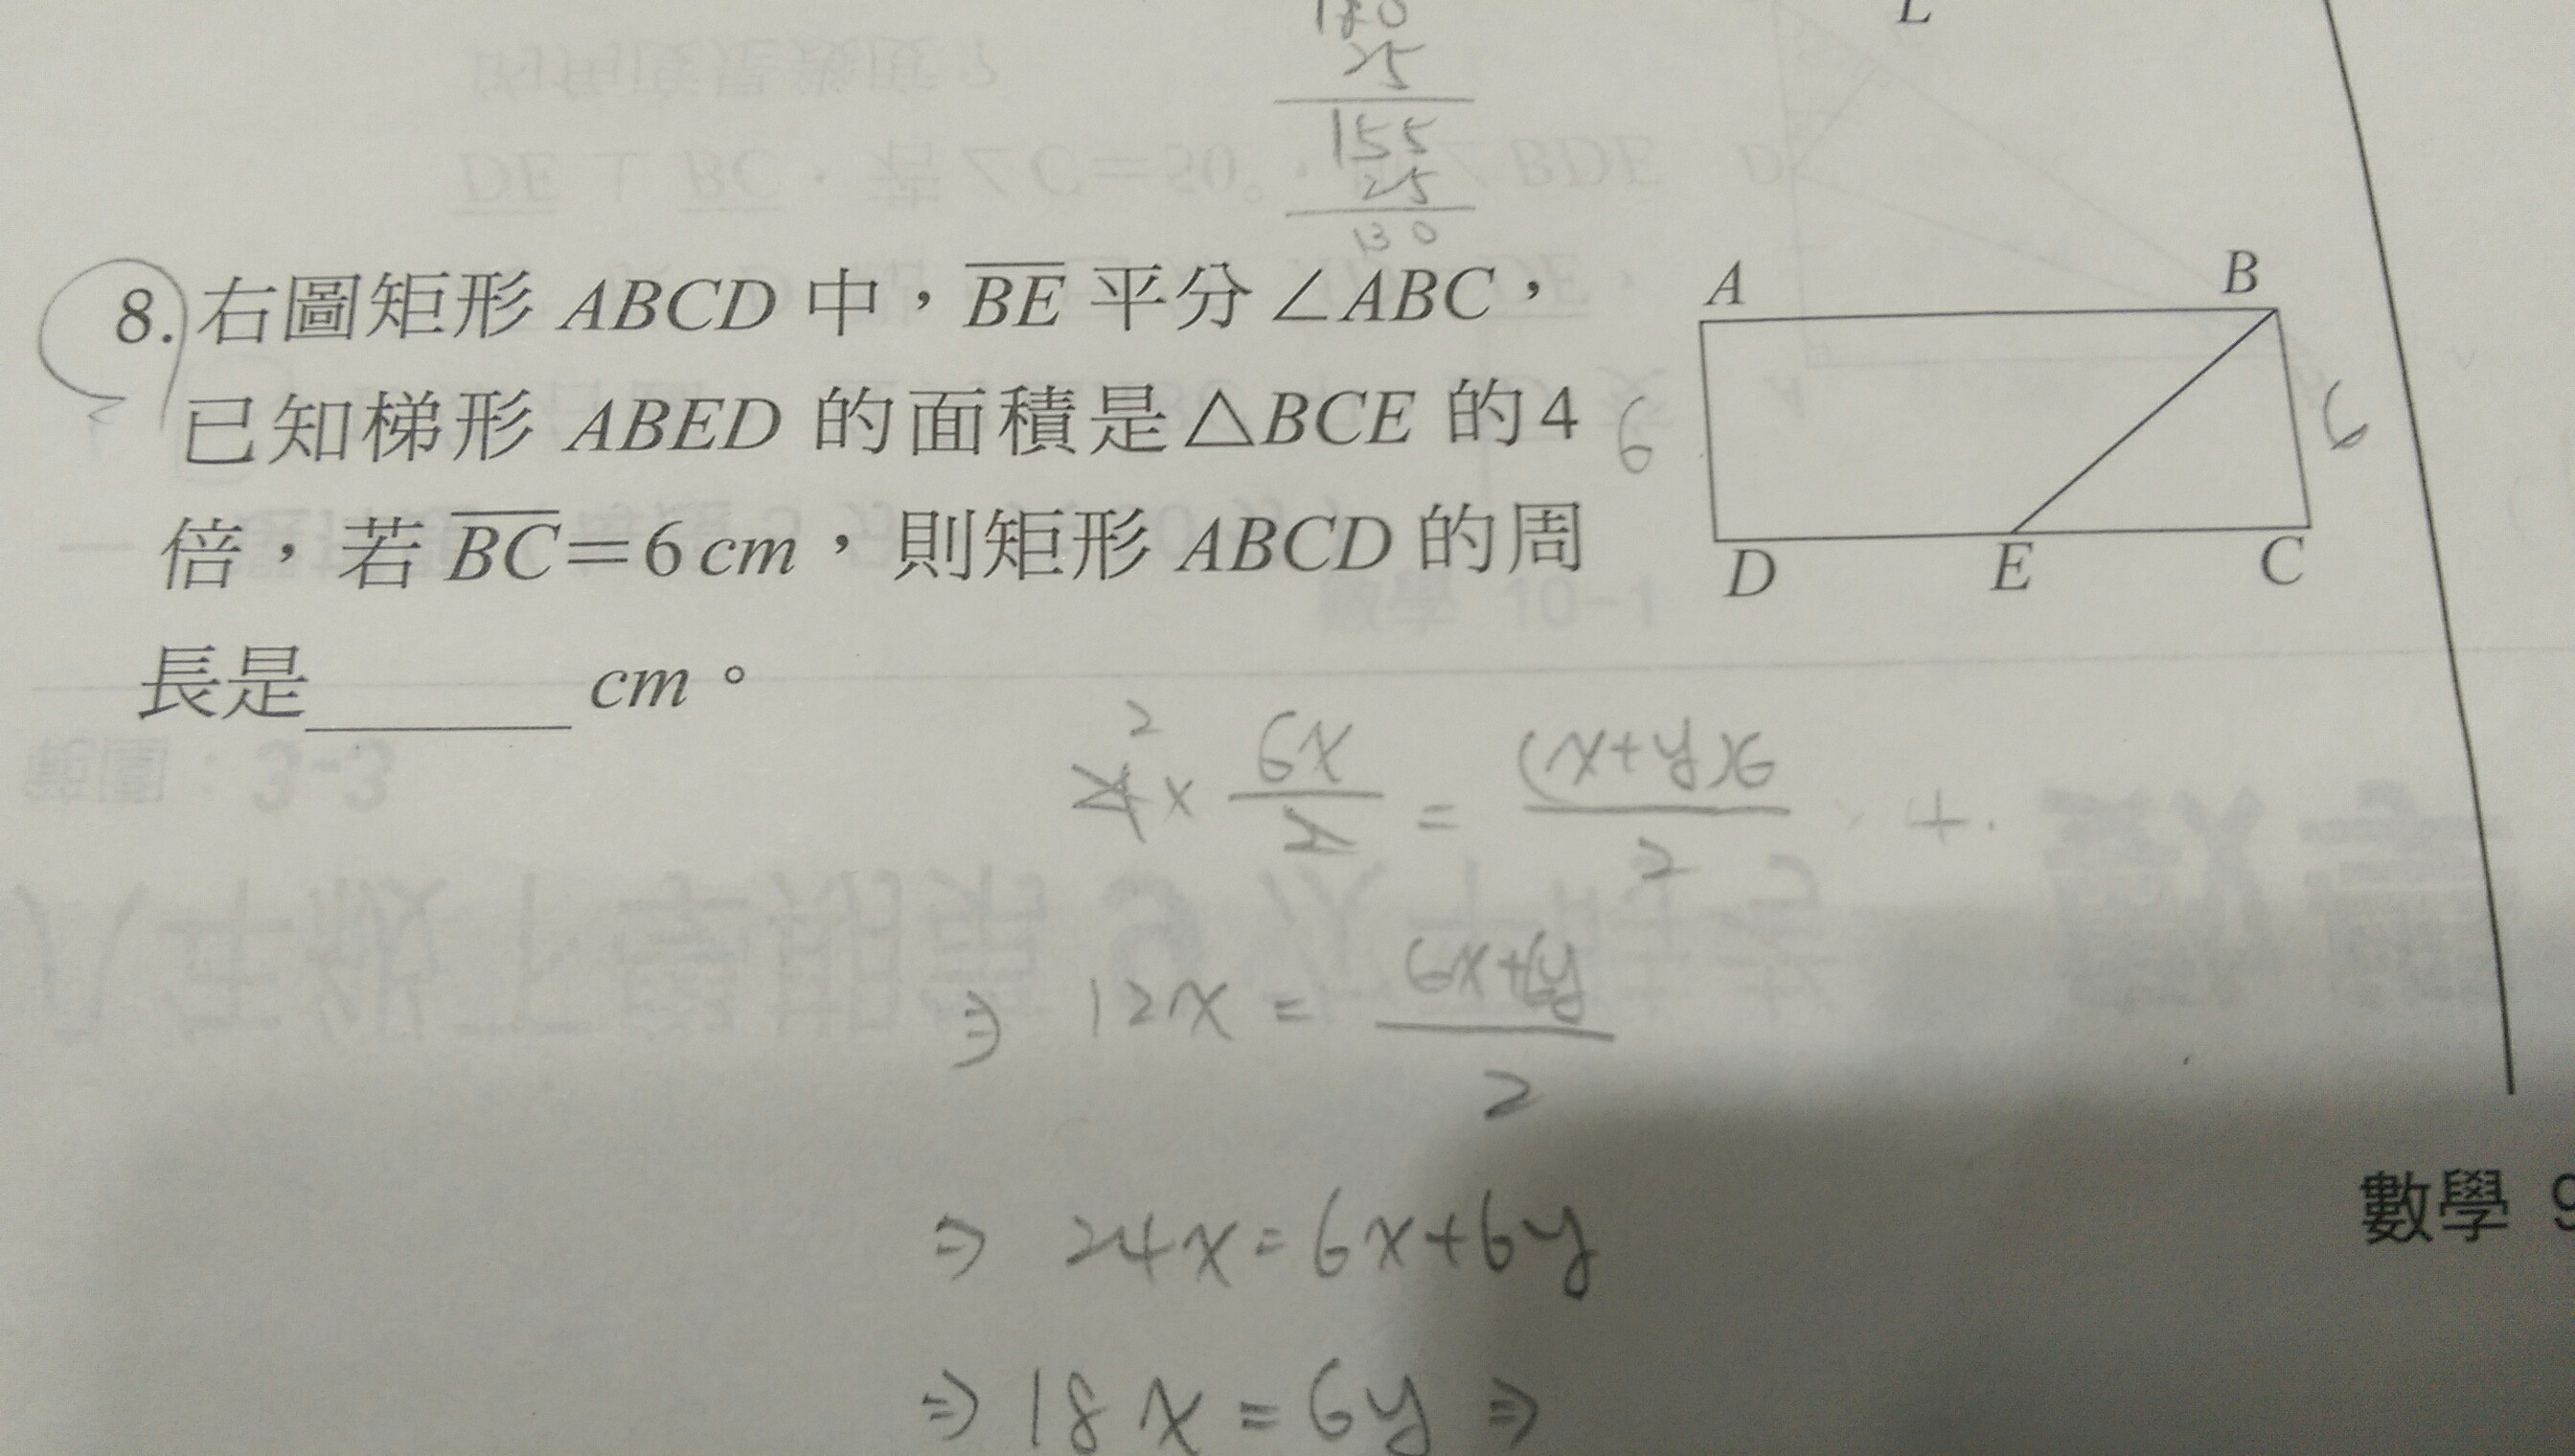 L
180
25
155
25
130
8. 右圖矩形 ABCD 中，BE 平分∠ABC，
已知梯形 ABED 的面積是△BCE 的4
倍，若 BC=6 cm，則矩形 ABCD 的周
長是______ cm。
A B
6 6
D E C
2
4 × 6x/2 = (x+y)×6/2
⇒ 12x = 6x+6y/2
⇒ 24x = 6x+6y
⇒ 18x = 6y ⇒
數學 9